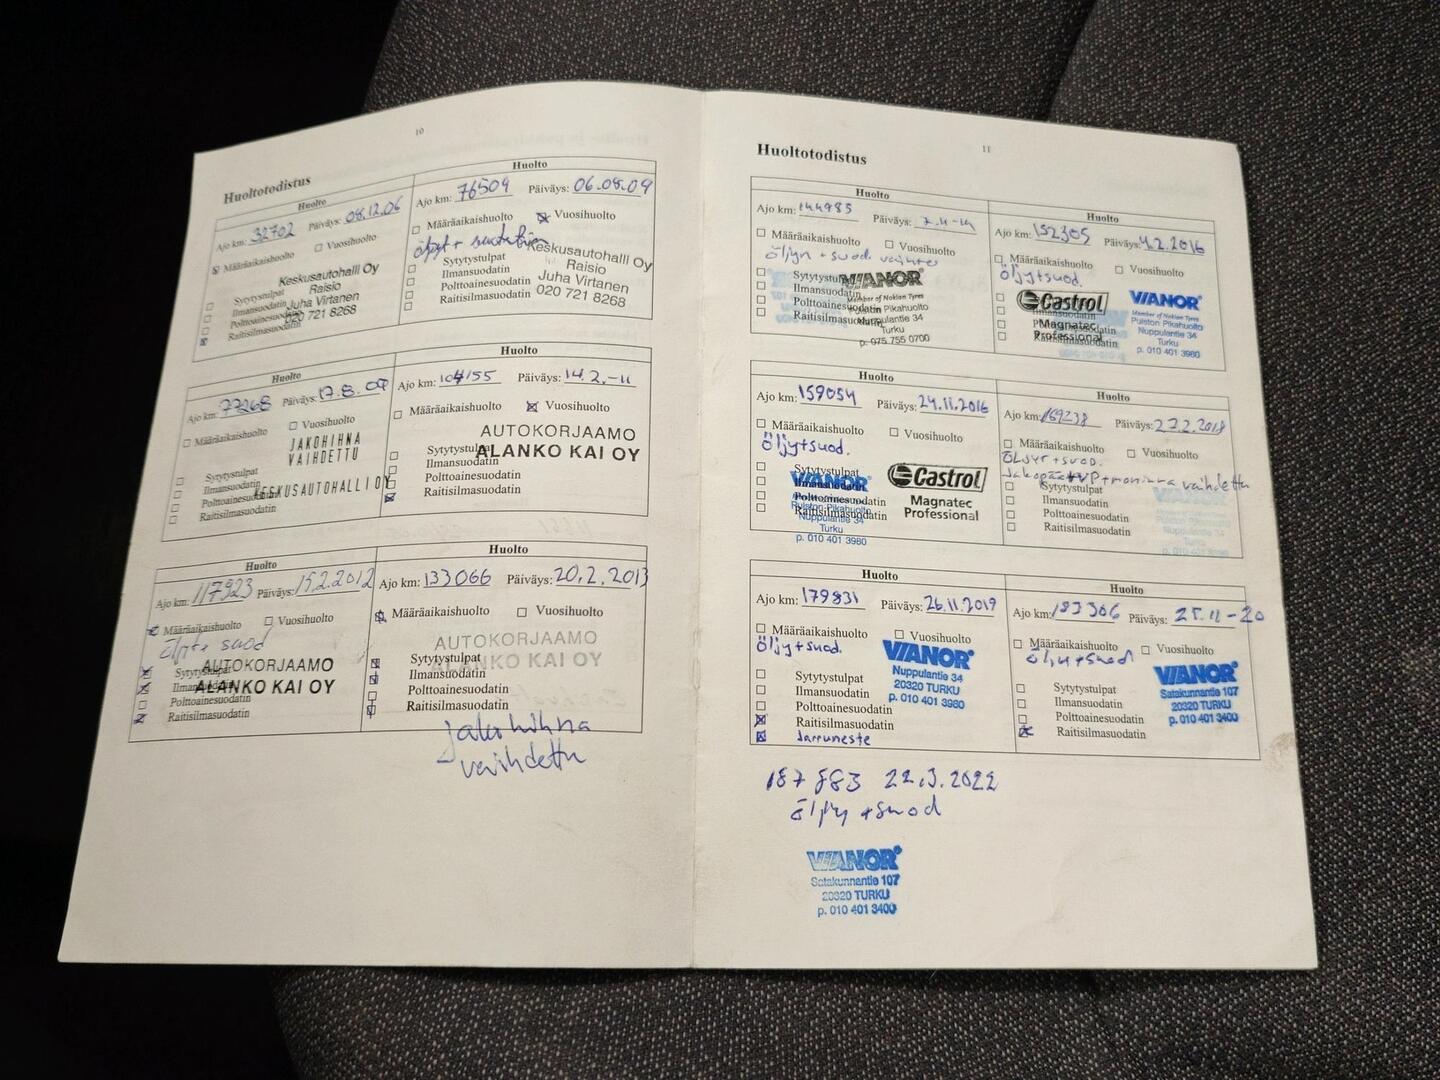 10
Huoltotodistus
Huolto
Ajo km: 32702 Päiväys: 08.12.06
Määräaikaishuolto
Vuosihuolto
Keskusautohalli Oy
Raisio
Juha Virtanen
020 721 8268
Sytytystulpat
Ilmansuodatin
Polttoainesuodatin
Raitisilmasuodatin
Huolto
Ajo km: 76509 Päiväys: 06.08.09
Määräaikaishuolto
Vuosihuolto
Keskusautohalli Oy
Raisio
Juha Virtanen
020 721 8268
Sytytystulpat
Ilmansuodatin
Polttoainesuodatin
Raitisilmasuodatin
Huolto
Ajo km: 77268 Päiväys: 17.8.09
Määräaikaishuolto
Vuosihuolto
JAKOHIHNA
VAIHDETTU
KESKUSAUTOHALLI OY
Sytytystulpat
Ilmansuodatin
Polttoainesuodatin
Raitisilmasuodatin
Huolto
Ajo km: 104155 Päiväys: 14.2.-11
Määräaikaishuolto
Vuosihuolto
AUTOKORJAAMO
ALANKO KAI OY
Sytytystulpat
Ilmansuodatin
Polttoainesuodatin
Raitisilmasuodatin
Huolto
Ajo km: 117923 Päiväys: 15.2.2012
Määräaikaishuolto
Vuosihuolto
suod
AUTOKORJAAMO
ALANKO KAI OY
Sytytystulpat
Ilmansuodatin
Polttoainesuodatin
Raitisilmasuodatin
Huolto
Ajo km: 133066 Päiväys: 20.2.2013
Määräaikaishuolto
Vuosihuolto
AUTOKORJAAMO
ALANKO KAI OY
Sytytystulpat
Ilmansuodatin
Polttoainesuodatin
Raitisilmasuodatin
jakohihna
vaihdettu
11
Huoltotodistus
Huolto
Ajo km: 144985 Päiväys: 7.11-14
Määräaikaishuolto
Vuosihuolto
öljyn + suod. vaihto
VIANOR
Member of Nokian Tyres
Puiston Pikahuolto
Nuppulantie 34
Turku
p. 075 755 0700
Sytytystulpat
Ilmansuodatin
Polttoainesuodatin
Raitisilmasuodatin
Huolto
Ajo km: 152305 Päiväys: 4.2.2016
Määräaikaishuolto
Vuosihuolto
öljy+suod.
Castrol
Magnatec
Professional
VIANOR
Member of Nokian Tyres
Puiston Pikahuolto
Nuppulantie 34
Turku
p. 010 401 3980
Ilmansuodatin
Raitisilmasuodatin
Huolto
Ajo km: 159054 Päiväys: 24.11.2016
Määräaikaishuolto
Vuosihuolto
öljy+suod.
Sytytystulpat
Ilmansuodatin
Polttoainesuodatin
Raitisilmasuodatin
VIANOR
Puiston Pikahuolto
Nuppulantie 34
Turku
p. 010 401 3980
Castrol
Magnatec
Professional
Huolto
Ajo km: 169238 Päiväys: 27.2.2018
Määräaikaishuolto
Vuosihuolto
+suod.
vaihdettu
Sytytystulpat
Ilmansuodatin
Polttoainesuodatin
Raitisilmasuodatin
VIANOR
Huolto
Ajo km: 179831 Päiväys: 26.11.2019
Määräaikaishuolto
Vuosihuolto
öljy+suod.
VIANOR
Nuppulantie 34
20320 TURKU
p. 010 401 3980
Sytytystulpat
Ilmansuodatin
Polttoainesuodatin
Raitisilmasuodatin
Jarruneste
Huolto
Ajo km: 183306 Päiväys: 25.11-20
Määräaikaishuolto
Vuosihuolto
öljy+suod
VIANOR
Satakunnantie 107
20320 TURKU
p. 010 401 3400
Sytytystulpat
Ilmansuodatin
Polttoainesuodatin
Raitisilmasuodatin
187 883 22.3.2022
öljy +suod
VIANOR
Satakunnantie 107
20320 TURKU
p. 010 401 3400